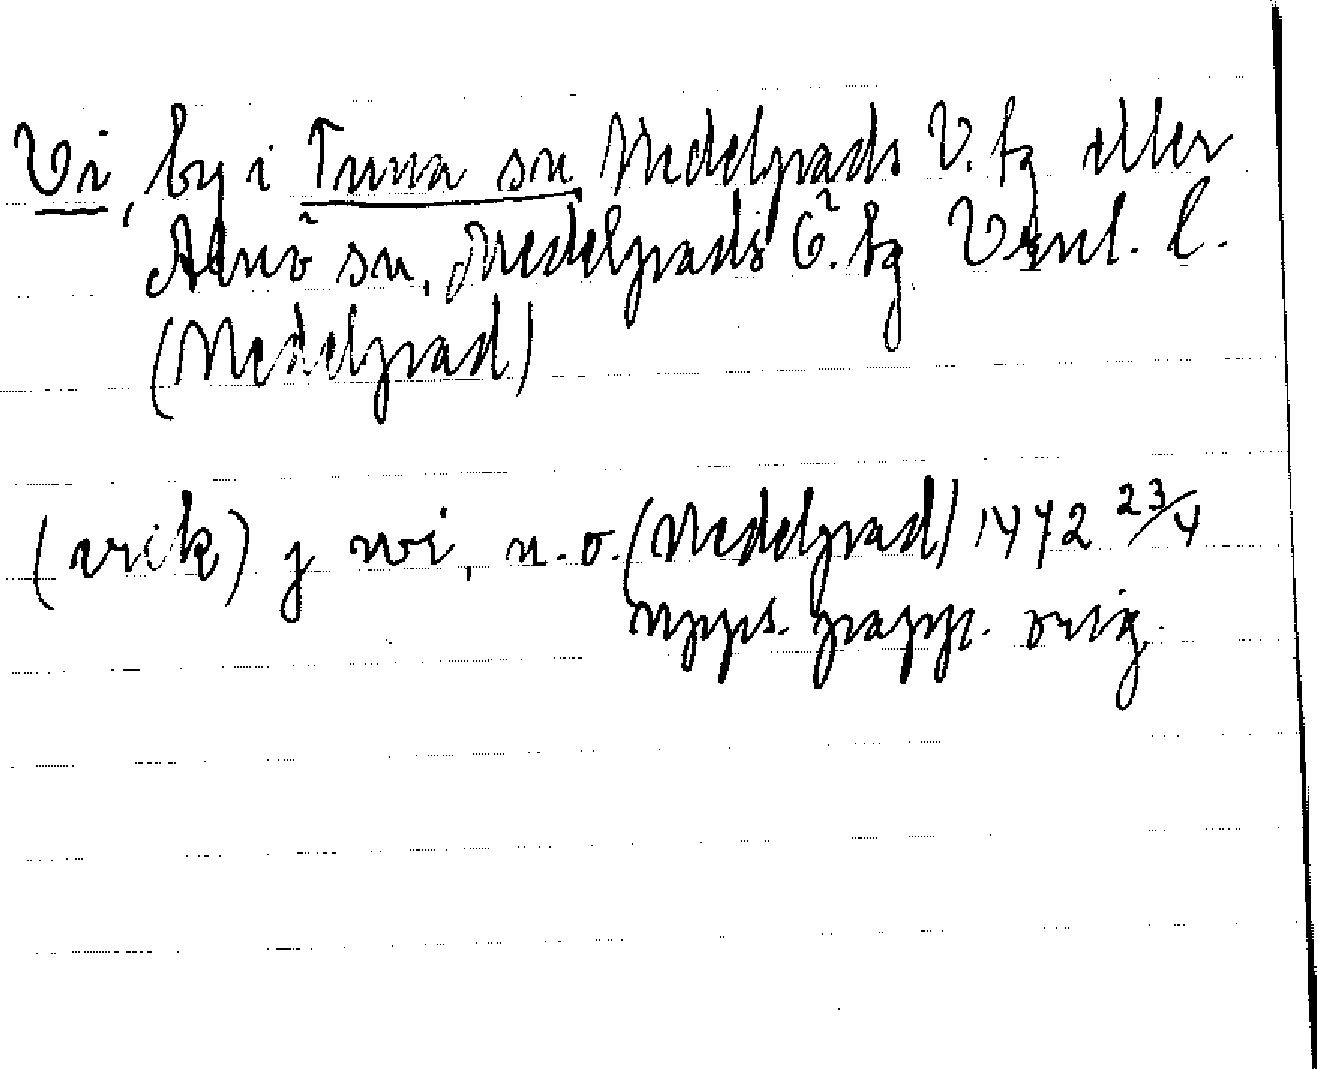 Vi, by i Tuna sn, Medelpads V. tg eller
Alnö sn, Medelpads Ö. tg Vznl. l.
(Medelpad)
(erik) j wi, n.o. (Medelpad) 1472 23/4
upps. papp. orig.